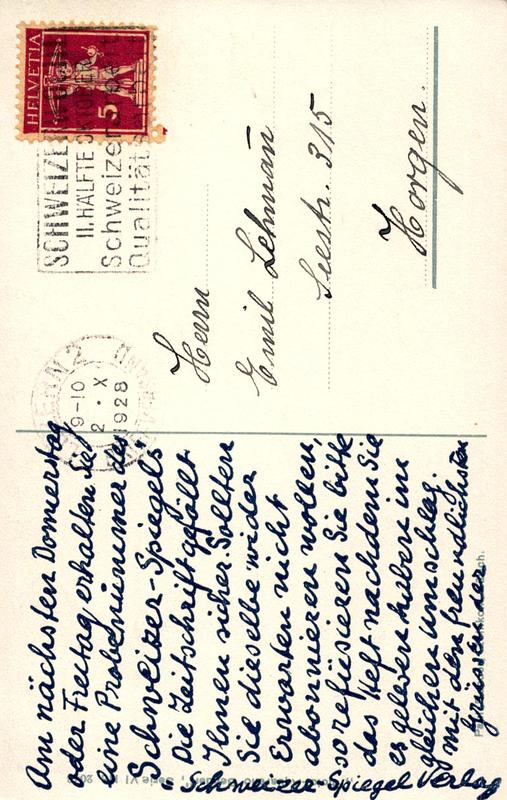 Am nächsten Donnerstag
oder Freitag erhalten Sie
eine Probenummer des
Schweizer-Spiegels
Die Zeitschrift gefällt
Ihnen sicher. Sollten
Sie dieselbe wider
Erwarten nicht
abonnieren wollen,
so refüsieren Sie bitte
das Heft nachdem Sie
es gelesen haben im
gleichen Umschlag.
mit den freundlichsten
Grüssen der
= Schweizer-Spiegel Verlag
HELVETIA
5
SCHWEIZERWOCHE
II. HÄLFTE OKTOBER
Schweizer
Qualität
9-10
2 · X
1928
Herrn
Emil Lehmann
Seestr. 315
Horgen.
Serie VI